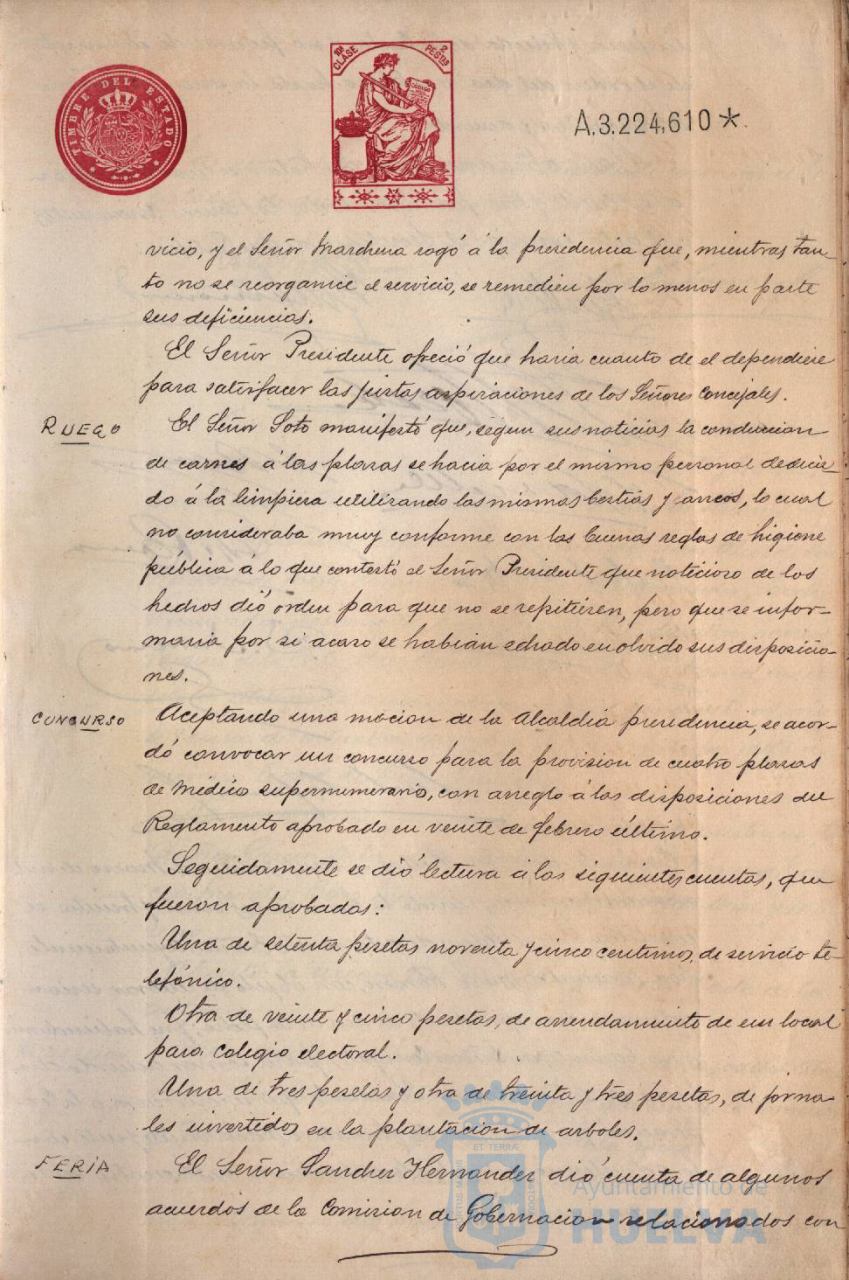 TIMBRE DEL ESTADO
10ª CLASE 2 PESTAS
A.3.224,610 *
vicio, y el Señor Marchena rogó á la presidencia que, mientras tan-
to no se reorganice el servicio, se remedien por lo menos en parte
sus deficiencias.
El Señor Presidente ofreció que haria cuanto de el dependiese
para satisfacer las justas aspiraciones de los Señores Concejales.
RUEGO
El Señor Soto manifestó que, segun sus noticias la conduccion
de carnes á las plazas se hacia por el mismo personal dedica-
do á la limpieza utilizando las mismas bestias y arreos, lo cual
no consideraba muy conforme con las buenas reglas de higiene
pública á lo que contestó el Señor Presidente que noticioso de los
hechos dió órden para que no se repitiesen, pero que se infor-
maria por si acaso se habian echado en olvido sus disposicio-
nes.
CONCURSO
Aceptando una mocion de la Alcaldía presidencia, se acor-
dó convocar un concurso para la provision de cuatro plazas
de Médico supernumerario, con arreglo á las disposiciones del
Reglamento aprobado en veinte de febrero último.
Seguidamente se dió lectura á las siguientes cuentas, que
fueron aprobadas:
Una de setenta pesetas noventa y cinco centimos, de servicio te-
lefónico.
Otra de veinte y cinco pesetas, de arrendamiento de un local
para colegio electoral.
Una de tres pesetas y otra de treinta y tres pesetas, de jorna-
les invertidos en la plantacion de arboles.
FERIA
El Señor Sanchez Hernandez dió cuenta de algunos
acuerdos de la Comision de Gobernacion relacionados con
ET TERRA
Ayuntamiento de
HUELVA